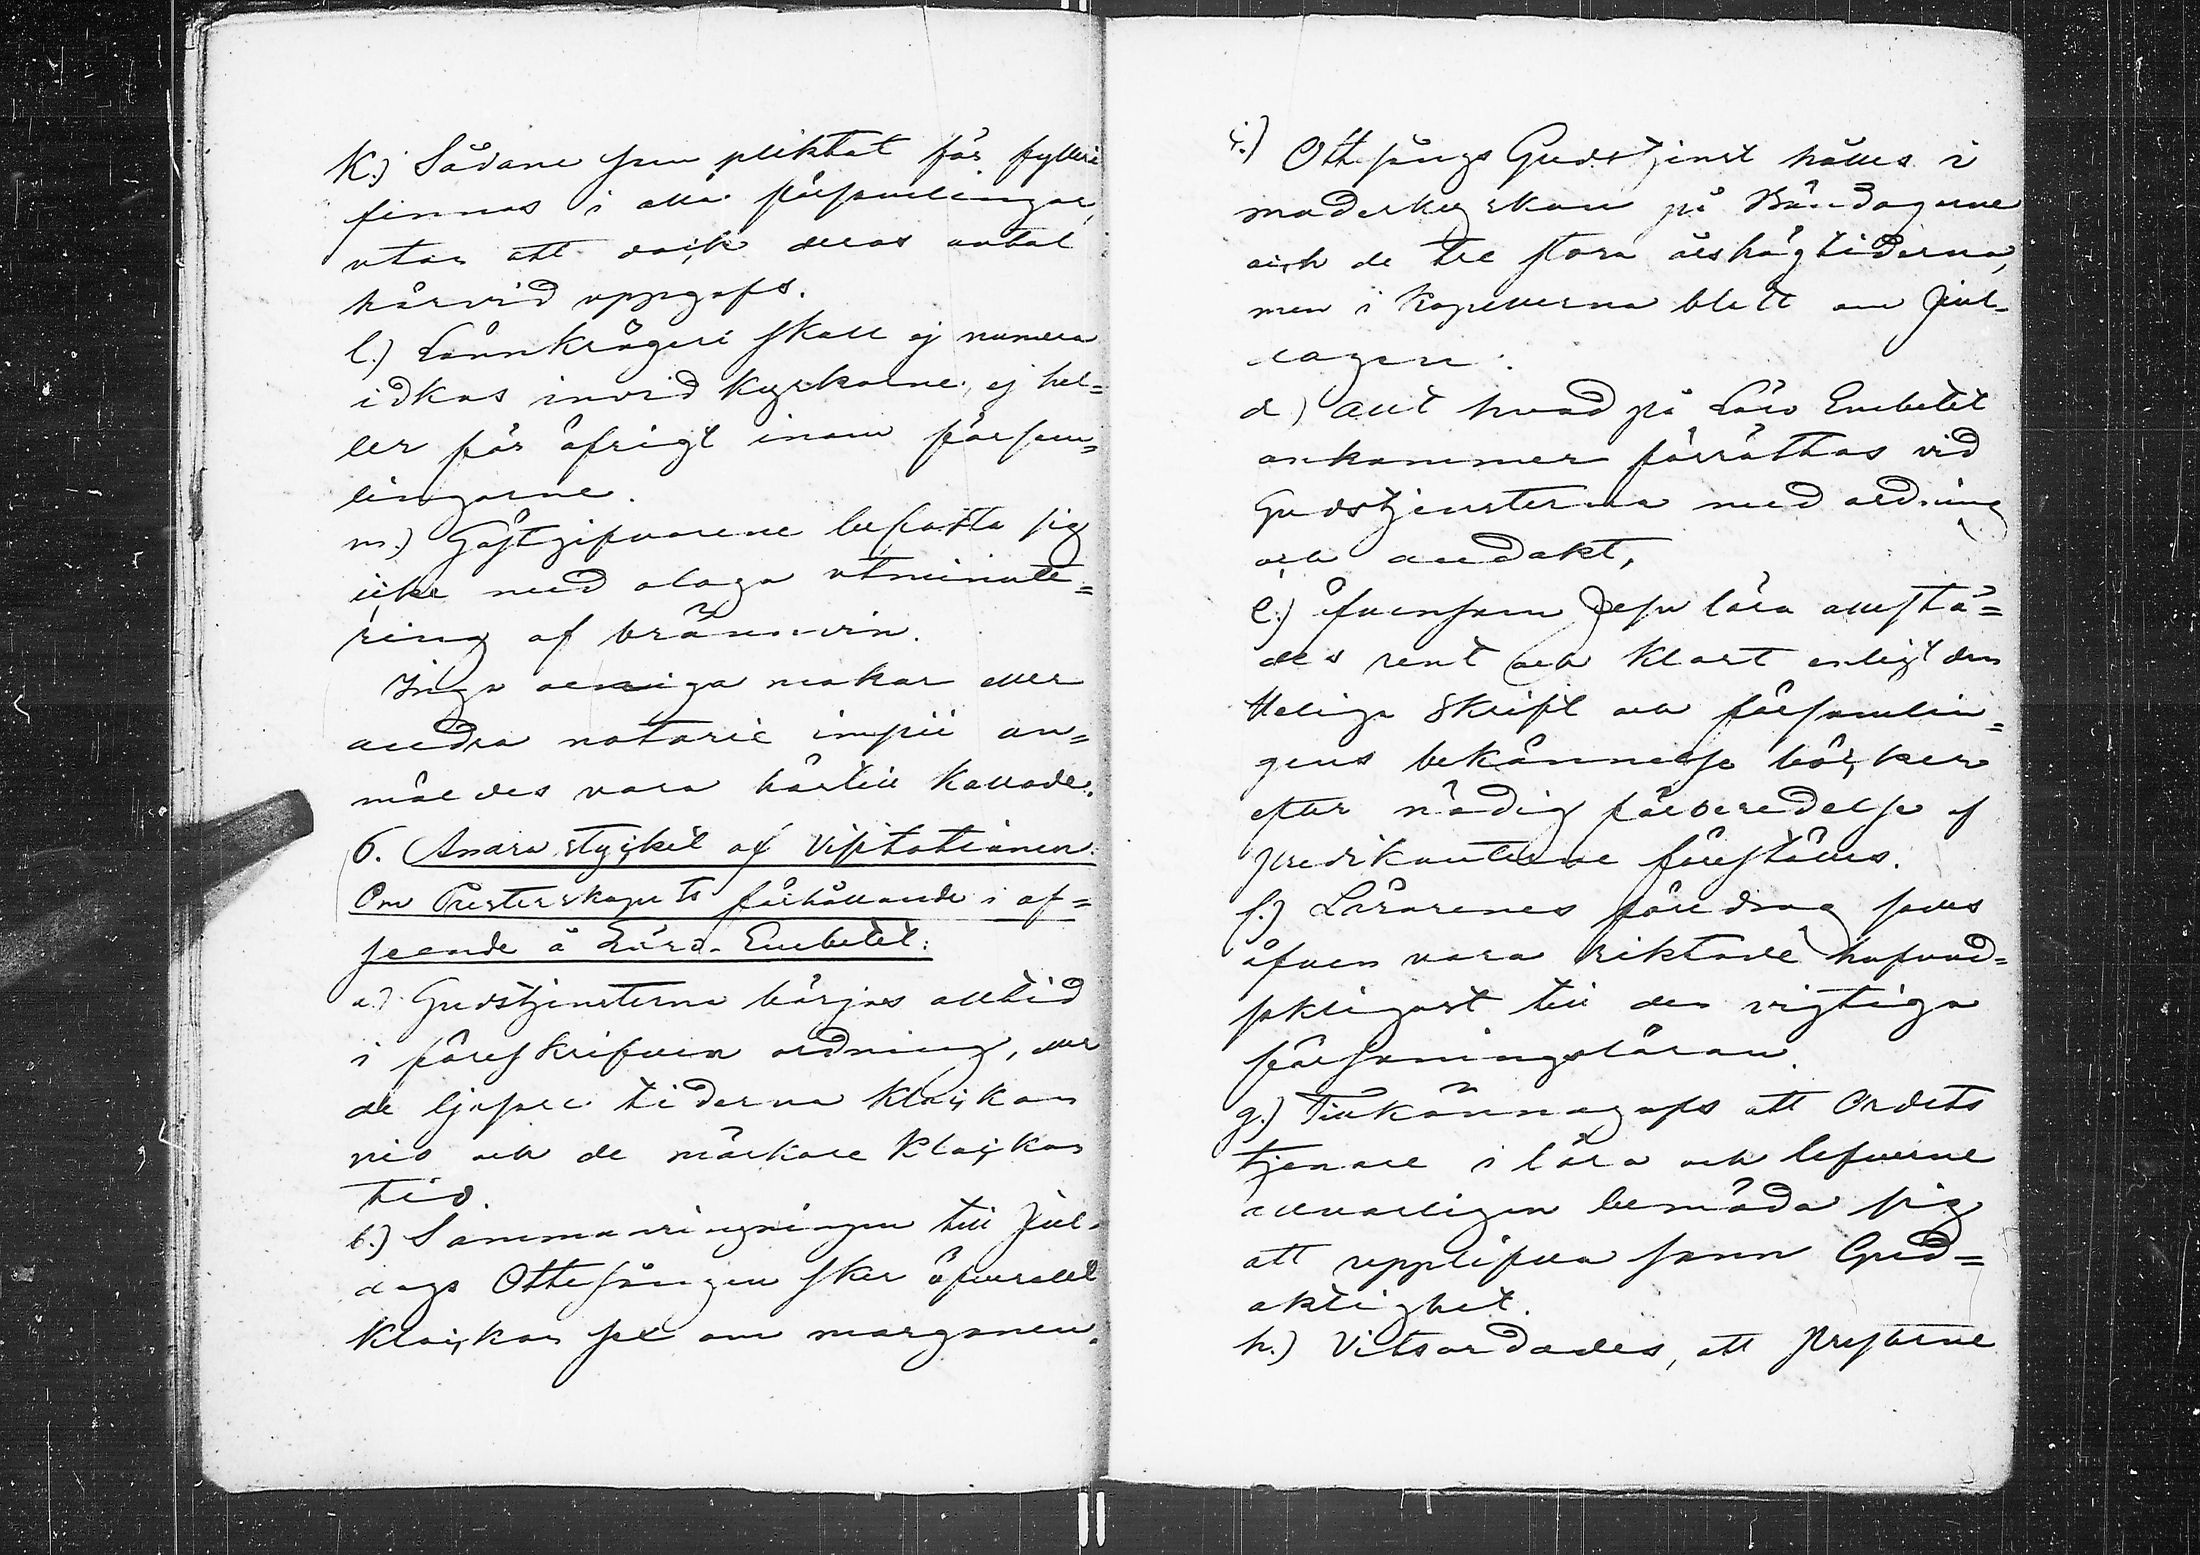 k.) Sådane som pliktat för fylleri
finnas i alla församlingar,
utan att dock deras antal
härvid uppgafs.
l.) Lönnkrögeri skall ej numera
idkas invid kyrkorne, ej hel=
ler för öfrigt inom försam=
lingarne.
m.) Gästgifvarene befatta sig
icke med olaga utminute=
ring af brännvin.
Inga oeniga makar eller
andra notorie impii an=
mäldes vara härtill kallade.
6. Andra stycket af Visitationen:
Om Presterskapets förhållande i af=
seende å Läro-Embetet:
a.) Gudstjensterna börjas alltid
i föreskrifven ordning, eller
de ljusare tiderna klockan
nio och de mörkare klockan
tio.
b.) Sammanringningen till Jul-
dags Ottesången sker öfverallt
klockan sex om morgonen.
c.) Ottesångs Gudstjenst hålles i
moderkyrkan på Böndagarne
och de tre stora årshögtiderna,
men i kapellerna blott om Jul-
dagen.
d.) allt hvad på Läro Embetet
ankommer förrättas vid
Gudstjensterna med ordning
och andakt,
e.) äfvensom Jesu lära
des rent och klart enligt den
Heliga Skrift och församlin=
gens bekännelse böcker
efter nödig förberedelse af
predikanterne föreställes.
f.) Lärarenes föredrag
äfven vara riktade hufvud=
sakligast till den vigtiga
försoningsläran.
g.) Tillkännagafs att Ordets
tjenare i lära och lefverne
allvarligen bemöda sig
att upplifva sann Gud=
aktighet.
h.) Vitsordades, att Presterne